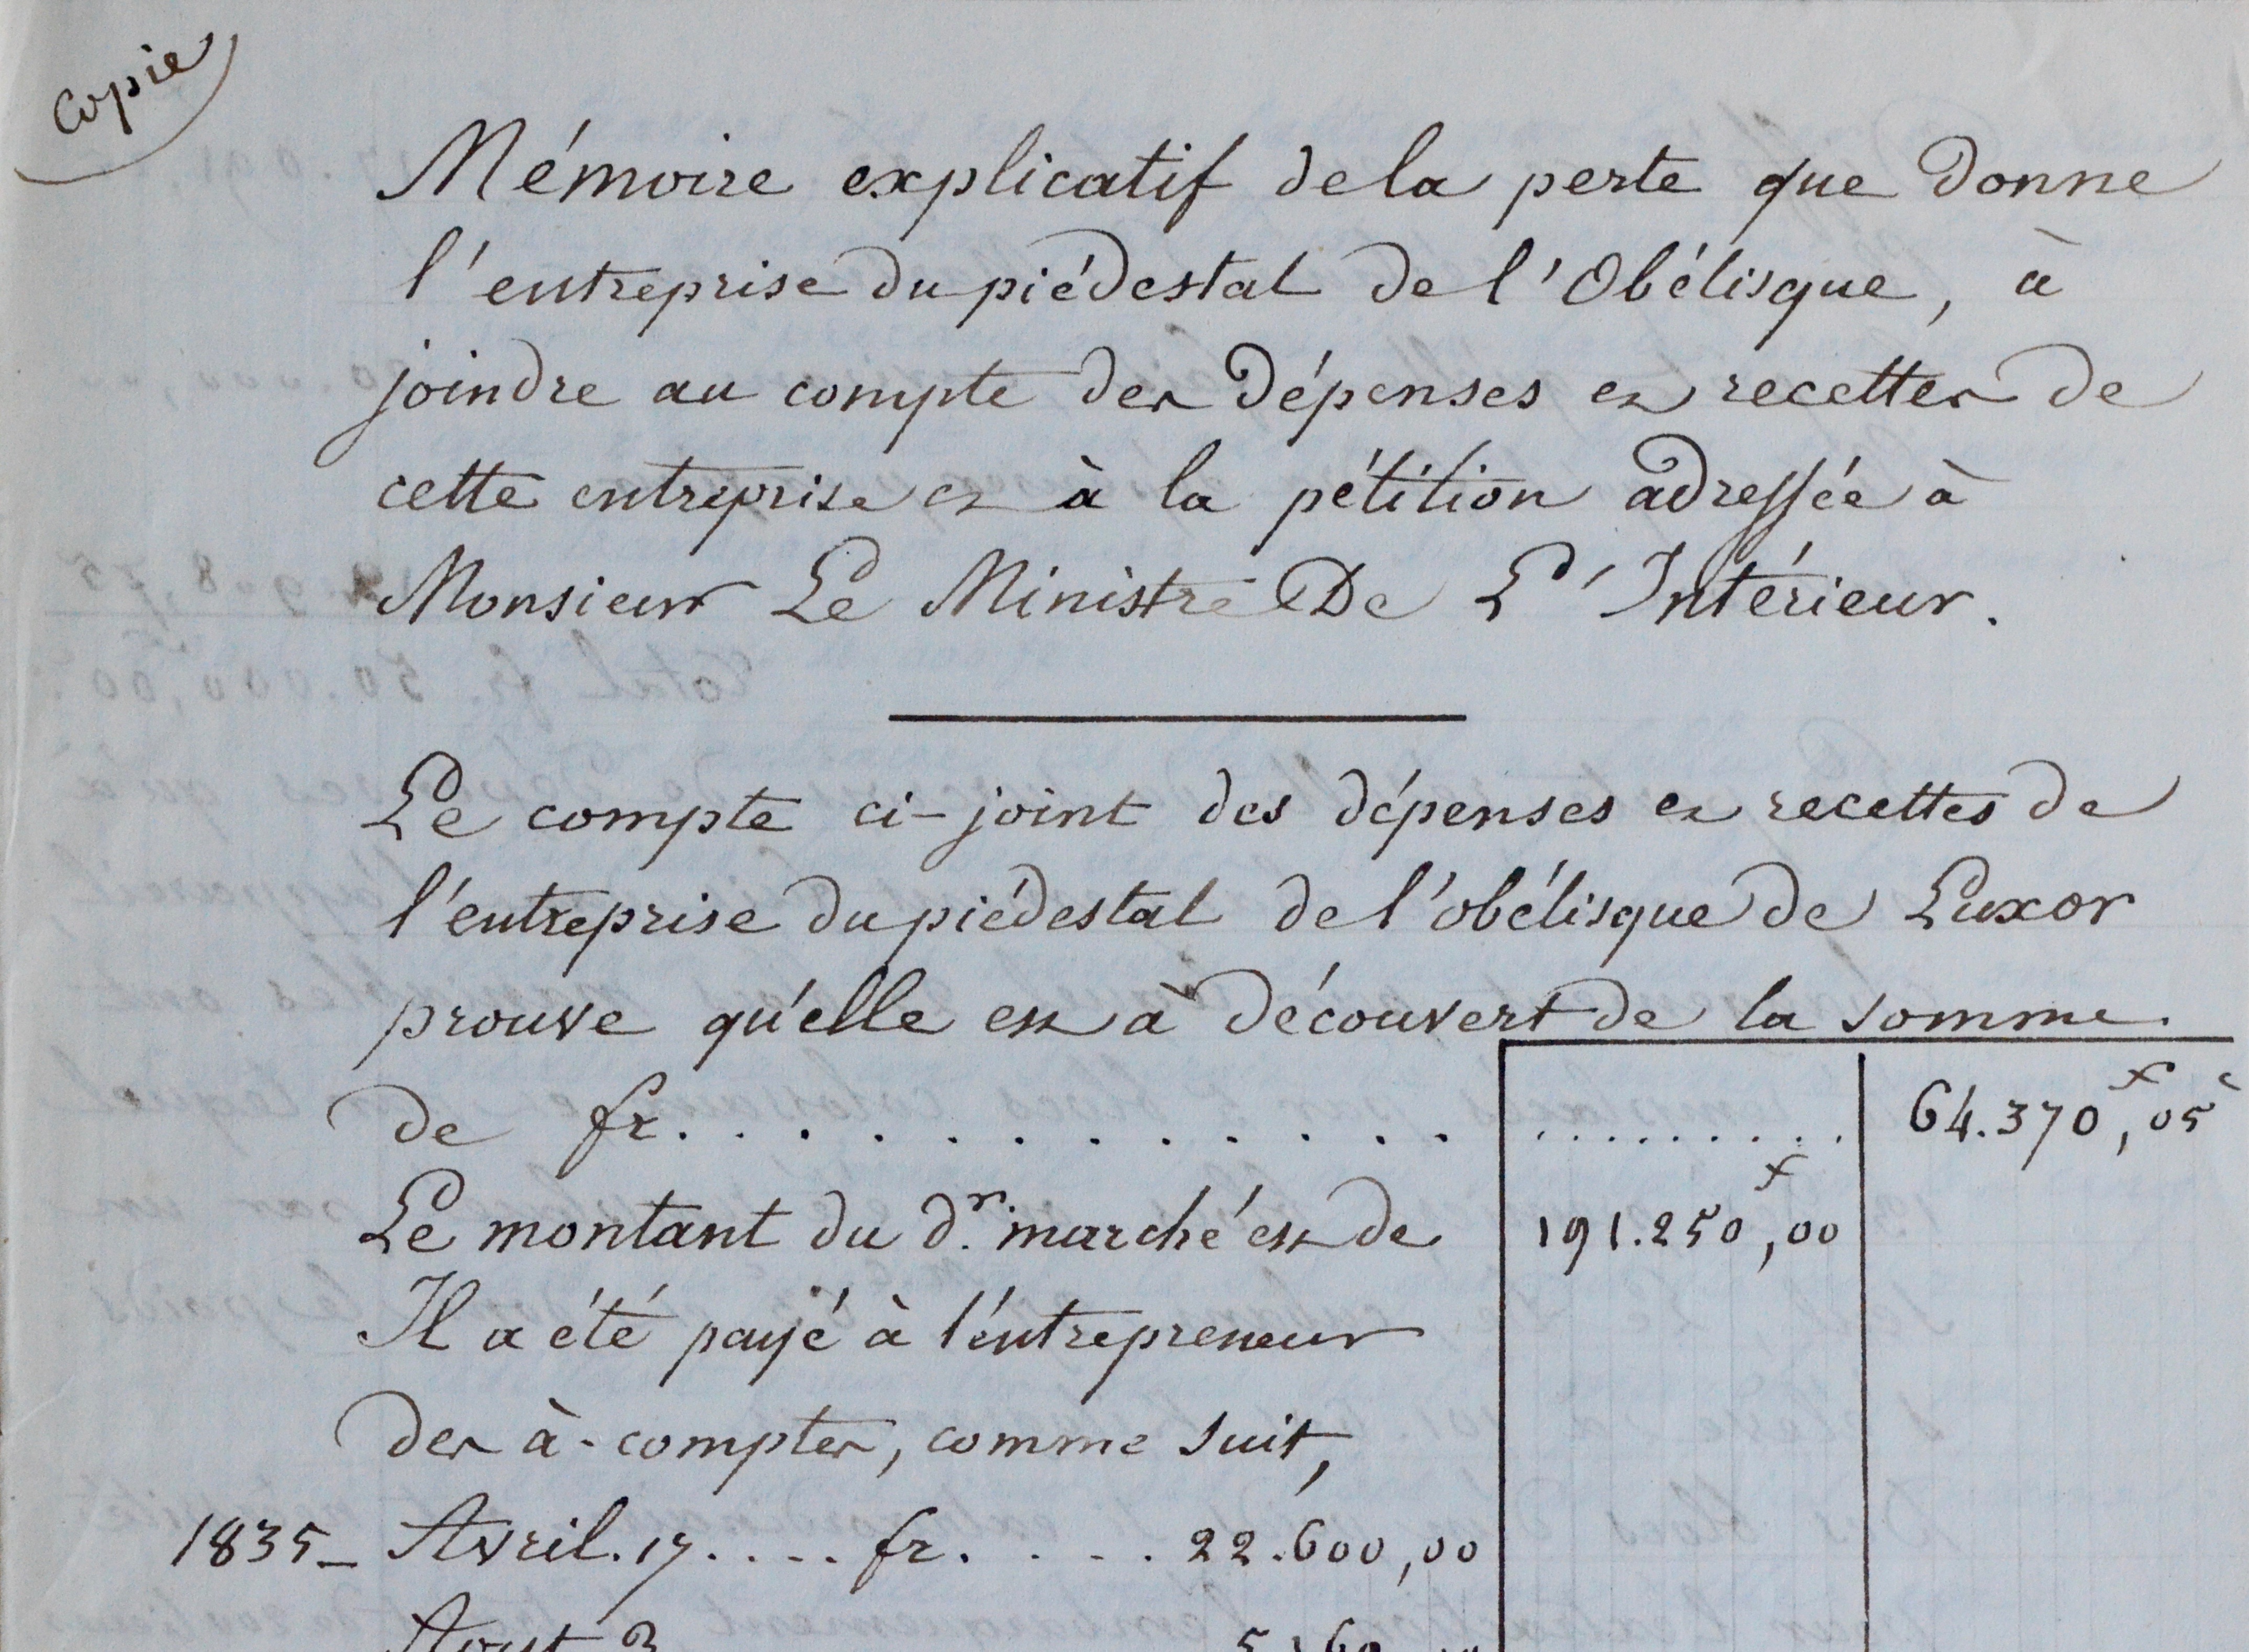 Copie
Mémoire explicatif de la perte que donne
l'entreprise du piédestal de l'Obélisque, à
joindre au compte des dépenses et recettes de
cette entreprise et à la pétition adressée à
Monsieur Le Ministre De L'Intérieur.
Le compte ci-joint des dépenses et recettes de
l'entreprise du piédestal de l'obélisque de Luxor
prouve qu'elle est à découvert de la somme
de fr. . . . . . . . . . . . . . . . . . . . . 64.370f,05c
Le montant du dr. marché est de 191.250f,00
Il a été payé à l'entrepreneur
des à-comptes, comme suit,
1835_ Avril. 17. . . . . fr. . . . . 22.600,00
Aout